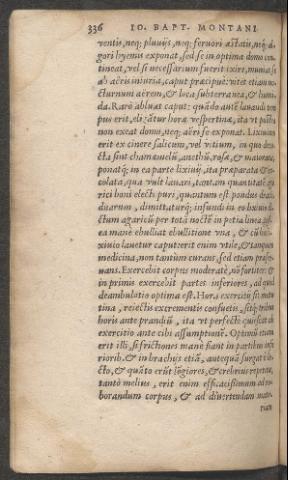 336 IO. BAPT. MONTANI
ventis, neq; pluuijs, neq; feruori æstatis, neq;
gori hyemis exponat, sed se in optima domo con
tineat, vel si necessarium fuerit exire, muniat se
ab aeris iniuria, caput præcipuè: vitet etiam no-
cturnum aërem, & loca subterranea, & humi-
da. Rarò abluat caput: quãdo autẽ lauandi tem
pus erit, eligãtur horæ vespertinæ, ita vt postea
non exeat domo, neq; aëri se exponat. Lixiuium
erit ex cinere salicum, vel vitium, in quo deco
cta sint chamæmelũ, anethũ, rosæ, &
ponatq; in ea parte lixiuij, ita præparata &
colata, qua vult lauari, tantam quantitatẽ
rici boni electi puri, quantum est pondus drach
duarum, dimittaturq; infundi in eo lixiuio
ctum agaricũ per totã noctẽ in petia linea
ea mane ebulliat ebullitione vna, & cũ hoc
xiuio lauetur caput: erit enim vtile, & tanquam
medicina, non tantùm curans, sed etiam præser
uans. Exercebit corpus moderatè, nõ fortiter: &
in primis exercebit partes inferiores, ad quod
deambulatio optima est. Hora exercitij sit matu
tina, reiectis excrementis consuetis, sitq; tribus
horis ante prandiũ, ita vt perfectè quiescat ab
exercitio ante cibi assumptionẽ. Optimũ etiam
erit illi, si frictiones mane fiant in partibus infe
riorib. & in brachijs etiã, antequã surgat è le-
cto, & quãto erũt lõgiores, & crebrius repetitæ,
tantò melius, erit enim efficacissimum ad ro-
borandum corpus, & ad diuertendam mate-
riam